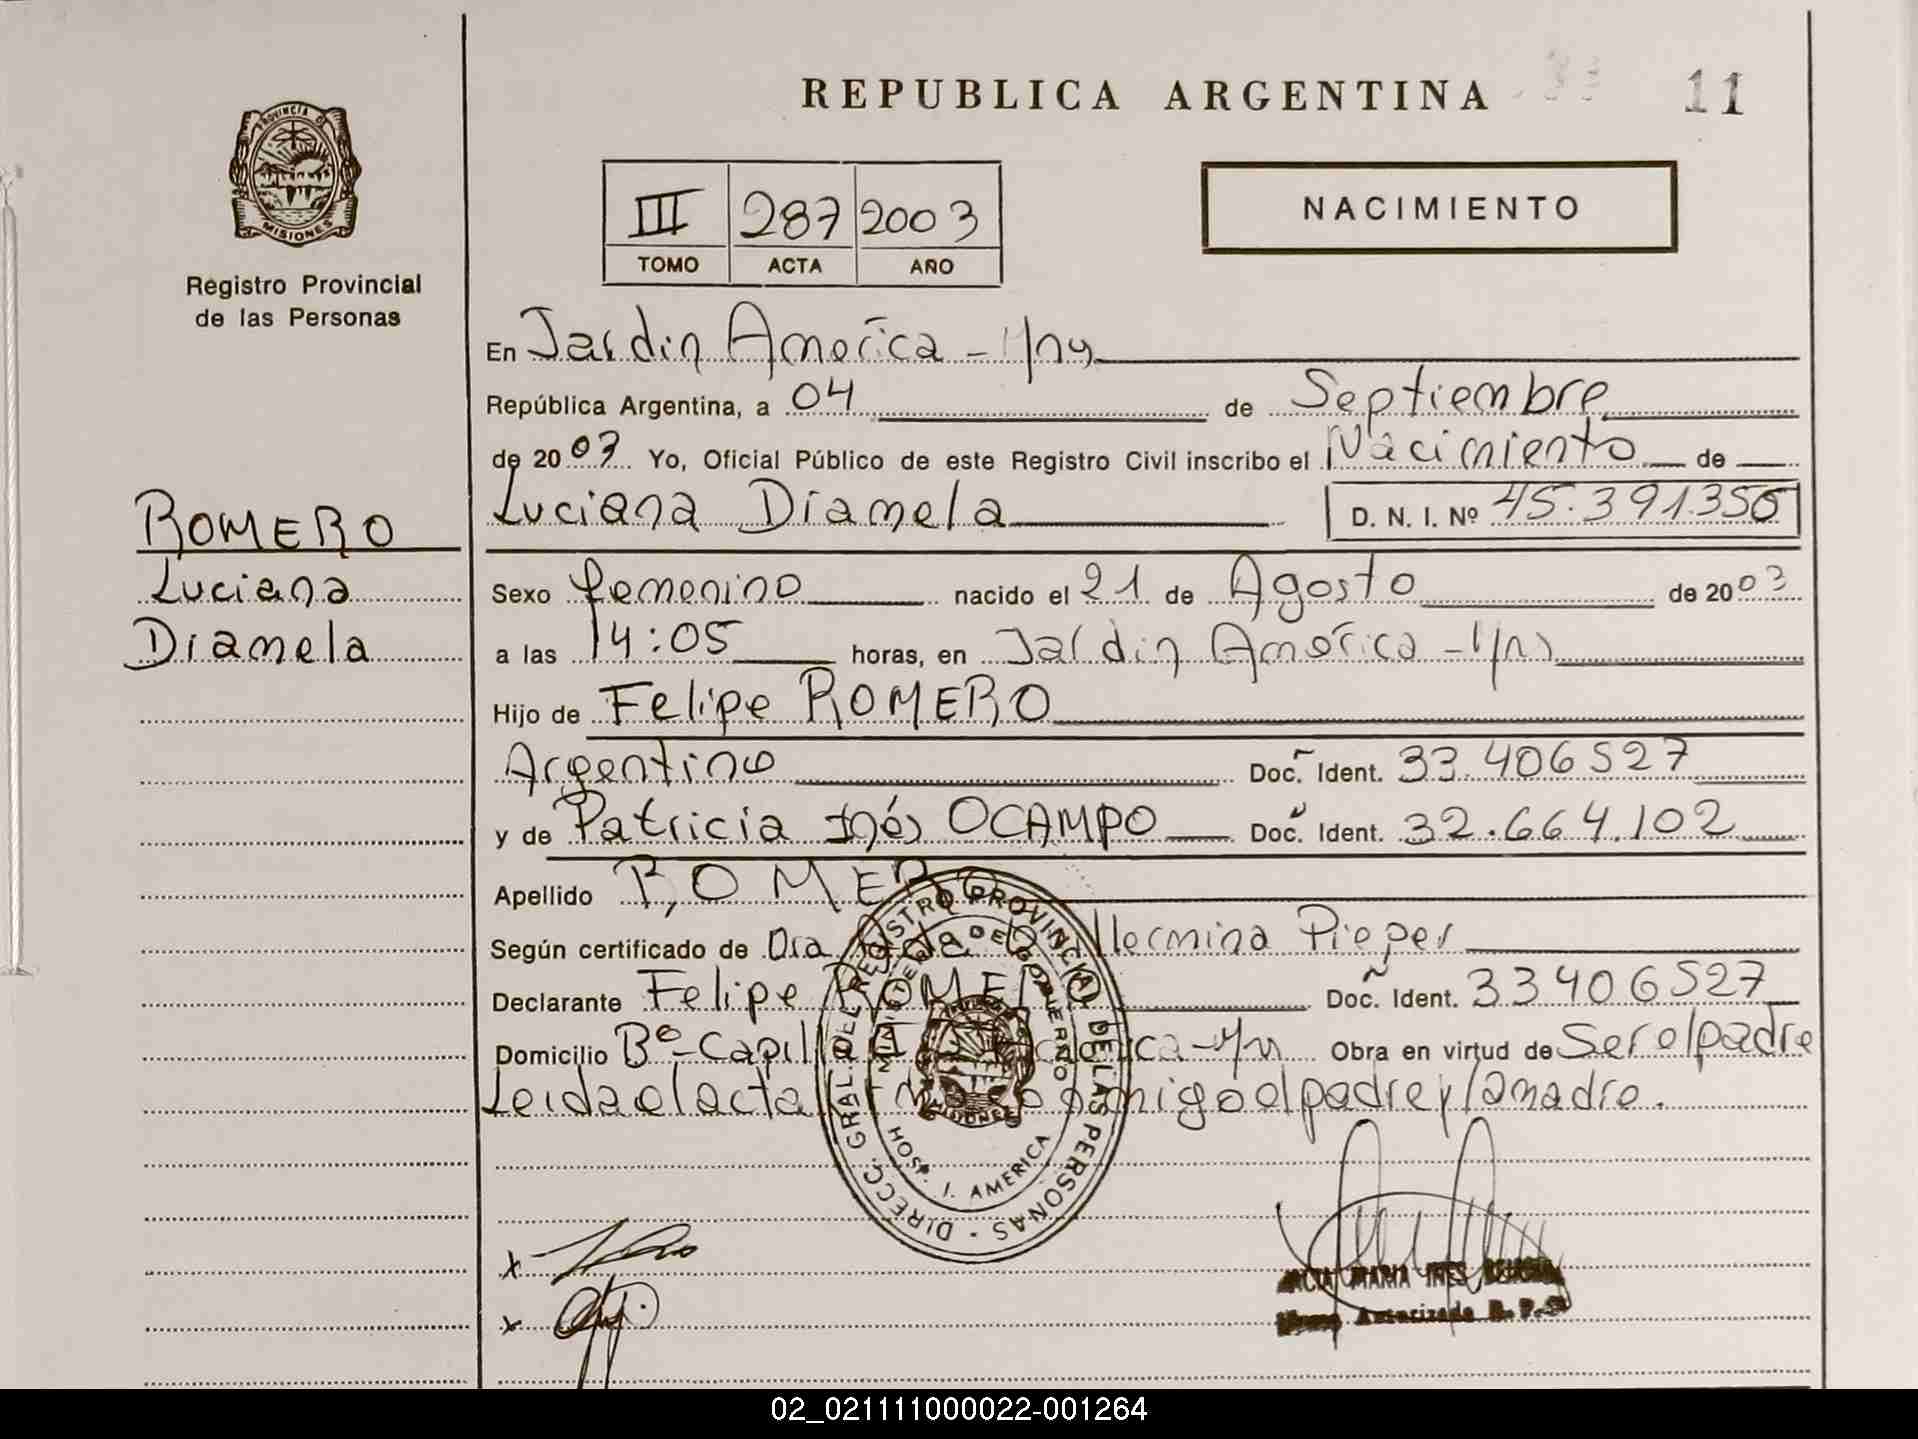 REPUBLICA ARGENTINA
11
PROVINCIA D
MISIONES
Registro Provincial
de las Personas
NACIMIENTO
III 287 2003
TOMO ACTA AÑO
En Jardin América - Mnes
República Argentina, a 04 de Septiembre
de 2003 Yo, Oficial Público de este Registro Civil inscribo el Nacimiento de
Luciana Diamela D. N. I. Nº 45.391.350
ROMERO
Luciana
Diamela
Sexo femenino nacido el 21 de Agosto de 2003
a las 14:05 horas, en Jardin América -
Hijo de Felipe ROMERO
Argentino Doc. Ident. 33.406527
y de Patricia Inés OCAMPO Doc. Ident. 32.664.102
Apellido ROMERO
Según certificado de Dra Pieper
Declarante Felipe ROMERO Doc. Ident. 33406527
Domicilio Bº-Capilla Obra en virtud de Ser el padre
Leida el acta conmigo el padre y la madre.
DIRECC. GRAL. DEL REGISTRO PROVINCIAL DE LAS PERSONAS
MINISTERIO DE GOBIERNO
MISIONES
HOSP. I. AMERICA
x
x
MARIA INES
Autorizada
02_021111000022-001264